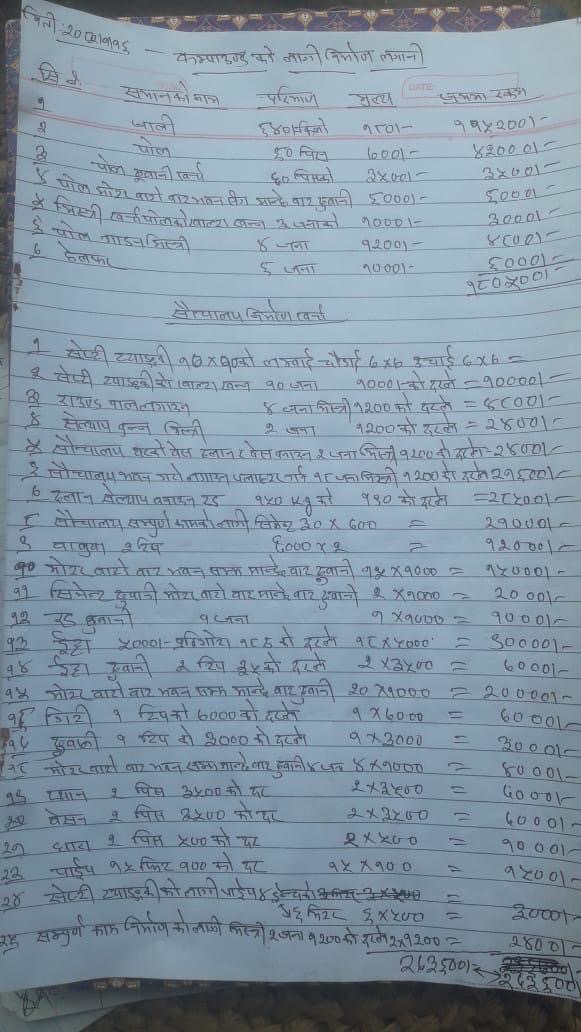 मिति:२०८१।१।१६ - कम्पाउण्डको लागी निर्माण लगानी
DATE:
सि.नं. समानको नाम परिमाण मुल्य जम्मा रकम
१ जाली ६४०किलो १८०।- ११५२००।-
२ पोल ६० पिस ७००।- ४२०००।-
३ पोल ढुवानी खर्च ६० पिसको ३५००।- ३५००।-
४ पोल मोटर बाटो बाट भवन मान्छे बाट ढुवानी ६०००।- ६०००।-
५ मिस्त्री खर्च पोलको खाल्टा खन्न ३ जनाको १०००।- ३०००।-
६ पोल गाड्न मिस्त्री ४ जना १२००।- ४८००।-
७ हेल्फर ६ जना १०००।- ६०००।-
१८०५००।-
सौचालय निर्माण खर्च
१ सेप्टी ट्याङ्की को लम्बाई चौडाई ७x७ उचाई ७x७ =
२ सेप्टी ट्याङ्की को खाल्टा खन्न १० जना १०००।-को दरले = १००००।-
३ राउण्ड वाल लगाउन ४ जना मिस्त्री १२०० को दरले = ४८००।-
४ सेल्याप बुन्न मिस्त्री २ जना १२०० को दरले = २४००।-
५ सौचालय बेस ढलान र २ जना मिस्त्री १२०० को दरले = २४००।-
६ सौचालय भवन गारो लगाउन पलाष्टर गर्न १८ जना मिस्त्री १२०० को दरले २१६००।-
७ ढलान सेल्याप बनाउन रड १५० kg को १९० को दरले = २८५००।-
८ सौचालय सम्पुर्ण कामको लागी सिमेन्ट ३० x ७०० = २१०००।-
९ बालुवा २ टिप ६००० x २ = १२०००।-
१० मोटर बाटो बाट भवन सम्म मान्छे बाट ढुवानी १५ x १००० = १५०००।-
११ सिमेन्ट ढुवानी मोटर बाटो बाट मान्छे बाट ढुवानी २ x १००० = २०००।-
१२ रड ढुवानी १ जना १ x १००० = १०००।-
१३ ईट्टा ५०००।- को दरले = ३००००।-
१४ ईट्टा ढुवानी २ टिप ३५ को दरले २ x ३५०० = ७०००।-
१५ मोटर बाटो बाट भवन सम्म मान्छे बाट ढुवानी २० x १००० = २००००।-
१६ गिटी १ टिपको ७००० को दरले १ x ७००० = ७०००।-
१७ ढुवानी १ टिप को ३००० को दरले १ x ३००० = ३०००।-
१८ मोटर बाटो बाट भवन सम्म मान्छे बाट ढुवानी ४ जना ४ x १००० = ४०००।-
१९ प्यान २ पिस ३५०० को दर २ x ३५०० = ७०००।-
२० बेसन २ पिस ३५०० को दर २ x ३५०० = ७०००।-
२१ धारा २ पिस ५०० को दर २ x ५०० = १०००।-
२२ पाईप १५ फिट १०० को दर १५ x १०० = १५००।-
२४ सेप्टी ट्याङ्की को लागी पाईप ४ ईन्चको =
६ फिटर ६ x ५०० = ३०००।-
२५ सम्पुर्ण काम निर्माण को लागी मिस्त्री २ जना १२०० को दरले २x१२०० = २४००।-
२६३५००।-
२६३५००।-